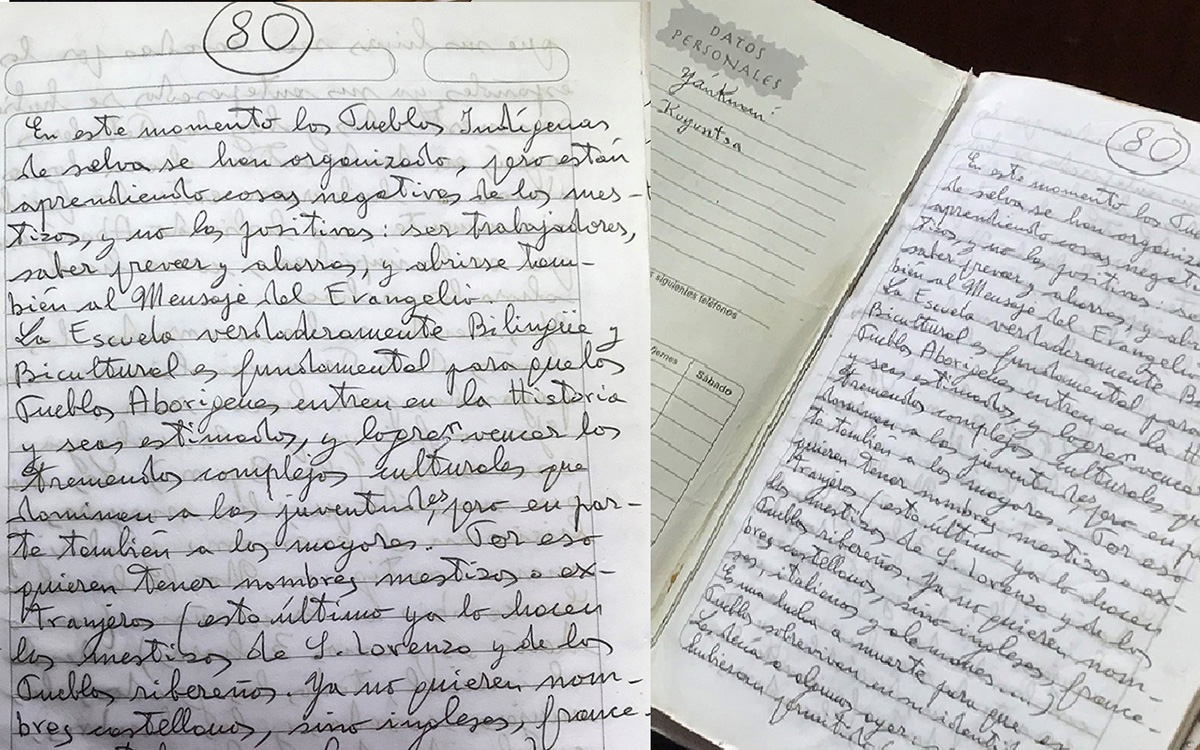 80
En este momento los Pueblos Indígenas
de selva se han organizado, pero están
aprendiendo cosas negativas de los mes-
tizos, y no las positivas: ser trabajadores,
saber preveer y ahorrar, y abrirse tam-
bién al Mensaje del Evangelio.
La Escuela verdaderamente Bilingüe y
Bicultural es fundamental para que los
Pueblos Aborígenes entren en la Historia
y seas estimados, y logren vencer los
tremendos complejos culturales que
dominan a las juventudes, pero en par-
te también a los mayores. Por eso
quieren tener nombres mestizos o ex-
tranjeros (esto último ya lo hacen
los mestizos de S. Lorenzo y de los
Pueblos ribereños. Ya no quieren nom-
bres castellanos, sino ingleses, france-
DATOS
PERSONALES
Yánkuam'
siguientes teléfonos
Sábado
80
En este momento los Pue
de selva se han organiza
aprendiendo cosas negat
tizos, y no las positivas: se
saber preveer y ahorrar, y ab
bién al Mensaje del Evangelio
La Escuela verdaderamente B
Bicultural es fundamental para
Pueblos Aborígenes entren en la H
y seas estimados, y logren vence
tremendos complejos culturales
dominan a las juventudes, pero en p
te también a los mayores. Por eso
quieren tener nombres mestizos o ex-
tranjeros (esto último ya lo hacen
los mestizos de S. Lorenzo y de los
Pueblos ribereños. Ya no quieren nom-
bres castellanos, sino ingleses, france-
ses, italianos y alemanes
Es una lucha a muerte para que
Pueblos sobrevivan en su identi
Les decía a algunos ayer:
hubieran